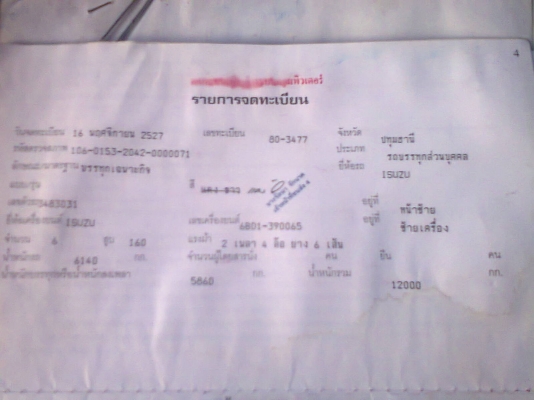 4
รายการจดทะเบียน
วันจดทะเบียน 16 พฤศจิกายน 2527 เลขทะเบียน 80-3477 จังหวัด ปทุมธานี
รหัสตรวจสภาพ 106-0153-2042-0000071 ประเภท รถบรรทุกส่วนบุคคล
ลักษณะ/มาตรฐาน บรรทุกเฉพาะกิจ ยี่ห้อรถ ISUZU
แบบ/รุ่น สี แดง ขาว
เลขตัวรถ 483031 อยู่ที่ หน้าซ้าย
ยี่ห้อเครื่องยนต์ ISUZU เลขเครื่องยนต์ 6BD1-390065 อยู่ที่ ซ้ายเครื่อง
จำนวน 6 สูบ 160 แรงม้า 2 เพลา 4 ล้อ ยาง 6 เส้น
น้ำหนักรถ 6140 กก. จำนวนผู้โดยสารนั่ง คน ยืน คน
น้ำหนักบรรทุกหรือน้ำหนักลงเพลา 5860 กก. น้ำหนักรวม 12000 กก.